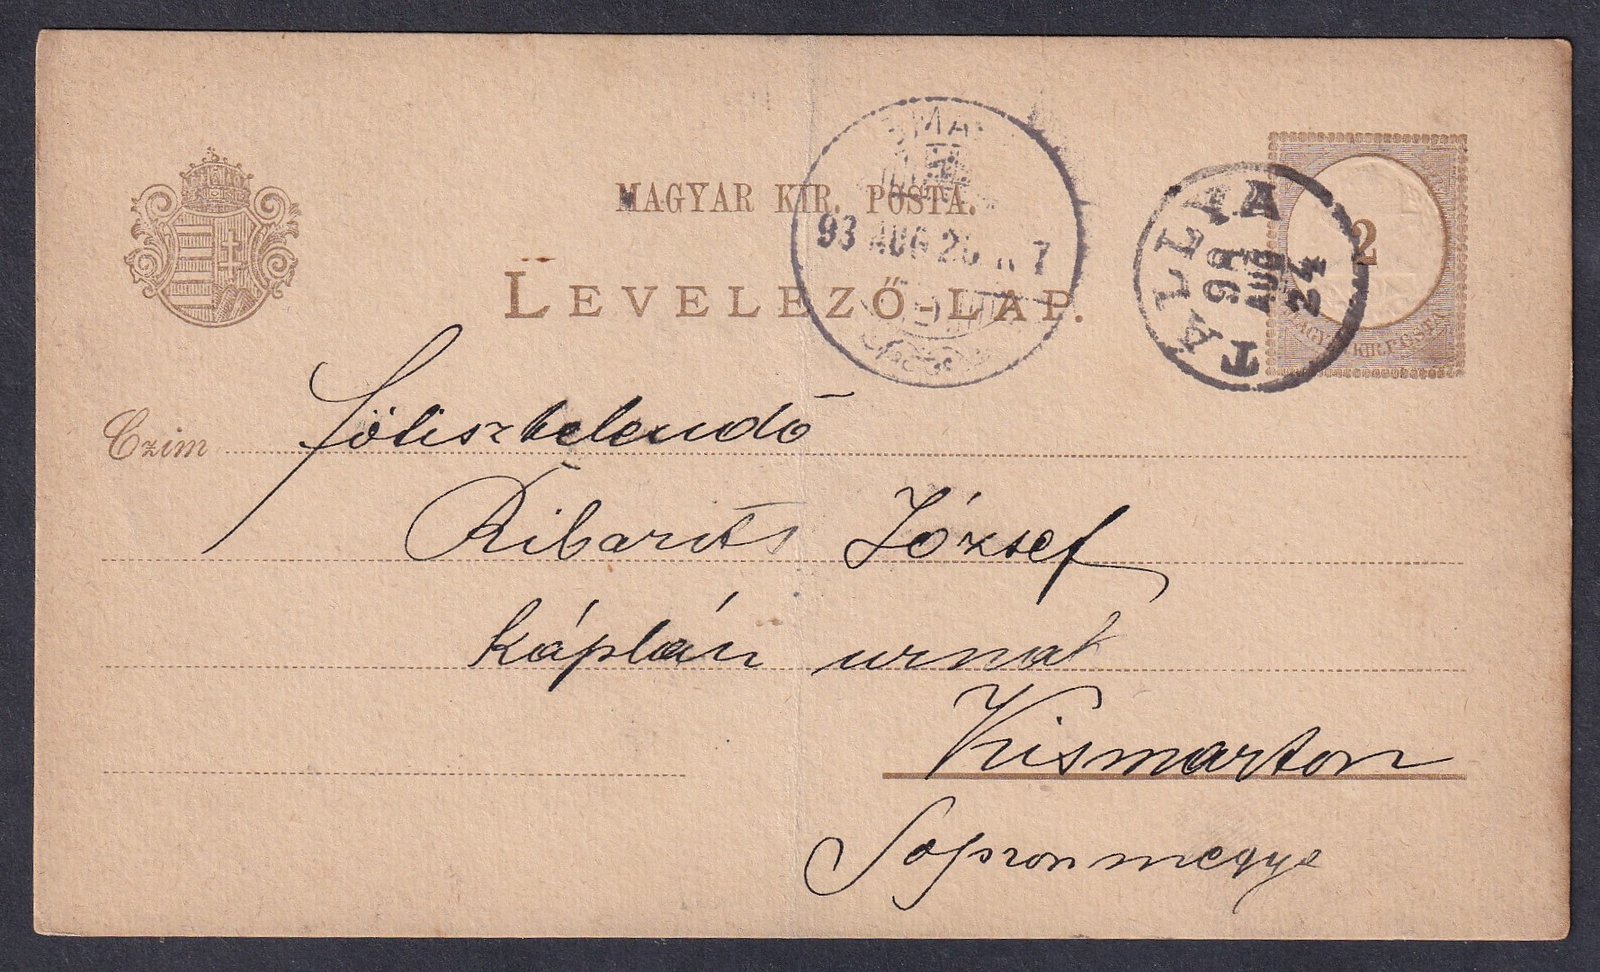 MAGYAR KIR. POSTA.
LEVELEZŐ-LAP.
93 AUG 25 7
TÁLLYA
93
AUG
24
2
MAGYAR KIR. POSTA
Czim
főtisztelendő
József
káplán urnak
Kismarton
Sopronmegye